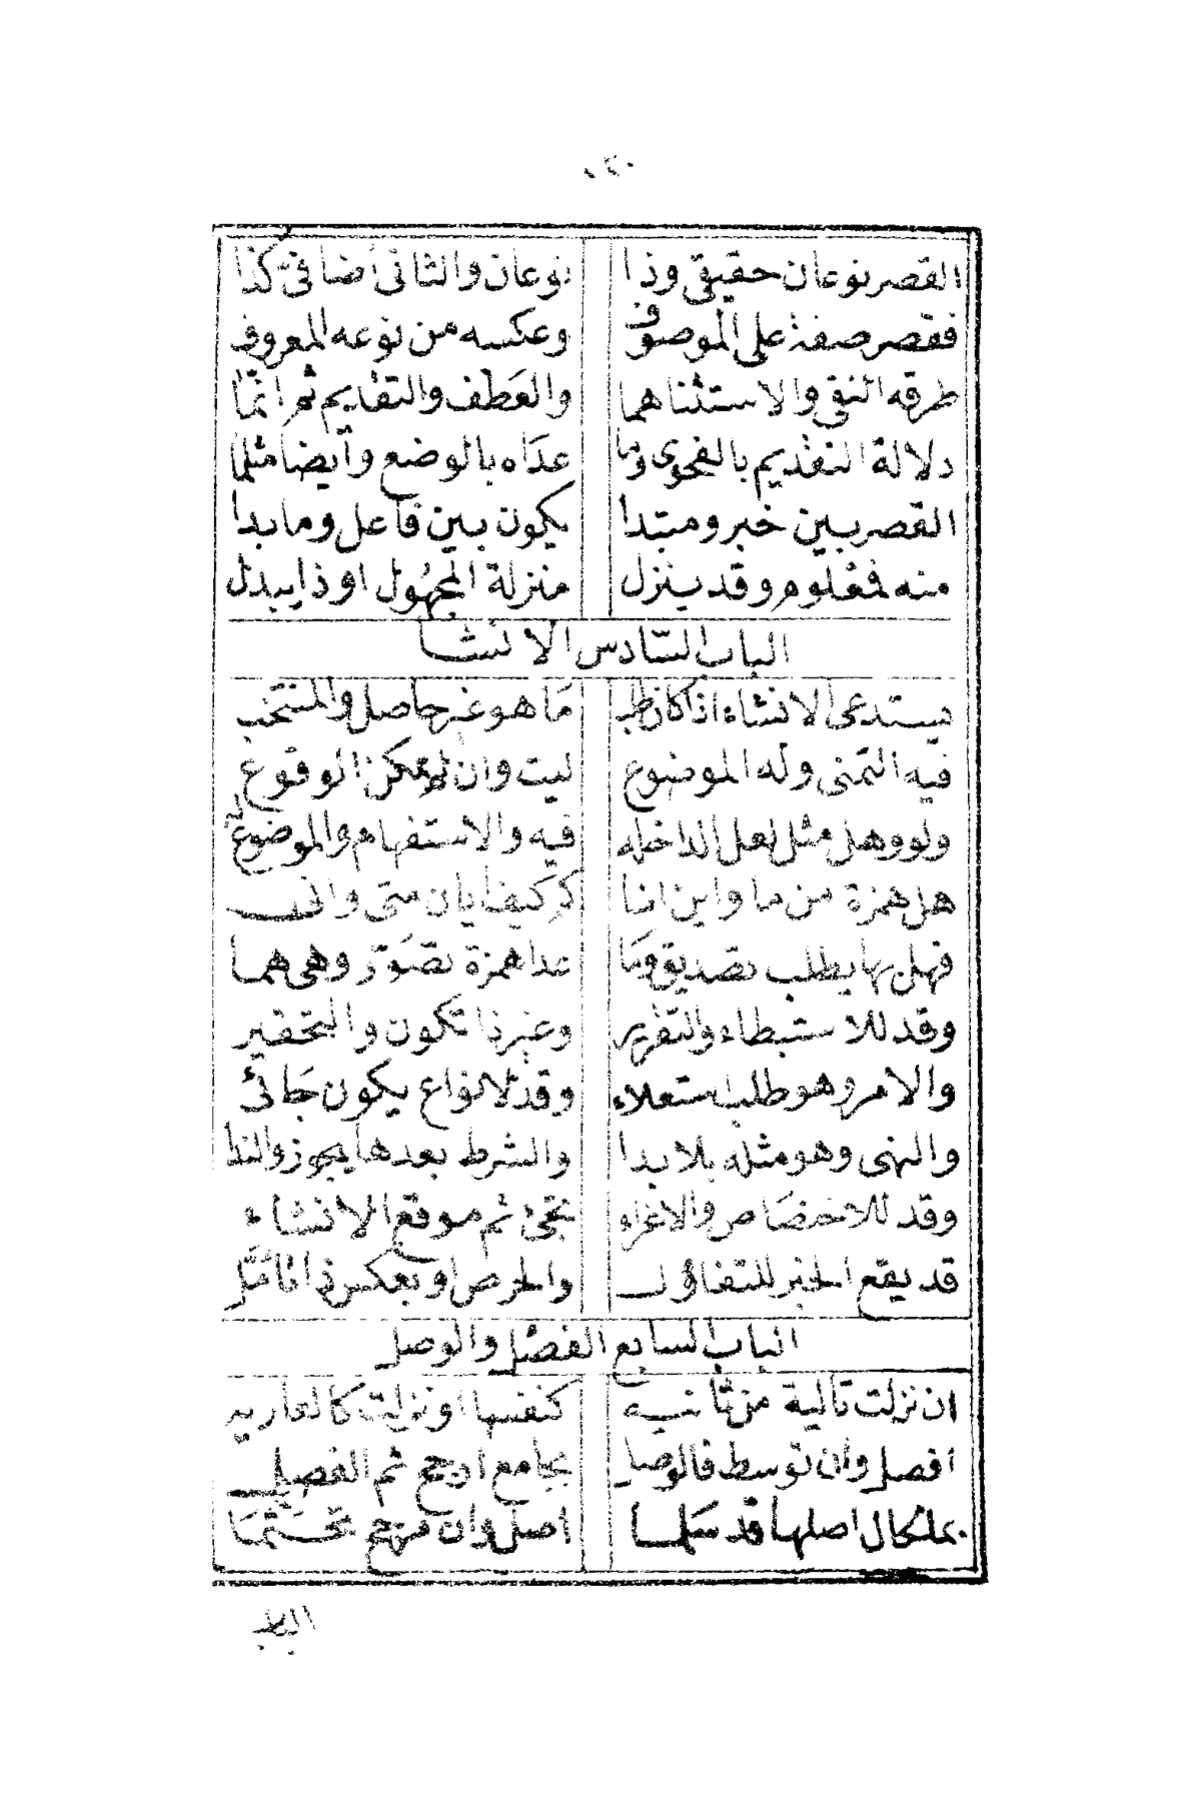 ١٢٠
القصر نوعان حقيقي وذا نوعان والثاني أضافيّ كذا
فقصر صفة على الموصوف وعكسه من نوعه المعروف
طرقه النفي والاستثنا هما والعَطف والتقديم ثم انّما
دلالة التقديم بالفحوى وما عدَاه بالوضع وأيضا مثلما
القصر بين خبر ومبتدا يكون بين فاعل وما بدا
منه فمعْلوم وقد ينزل منزلة المجهُول او ذا يبدل
الباب السّادس الانشا
يستدعى الانشاء اذا كان طلب مَا هو غير حاصل والمنتخب
فيه التمنى وله الموضوع ليت وان لم يمكن الوقوع
ولو وهل مثل لعل الداخله فيه والاستفهام والموضوع له
هل همزة من ما واين اينا كم كيف ايان متى وانى
فهل بها يطلب تصديق ومَا عدا همزة تصَوّر وهى هما
وقد للاستبطاء والتقرير وغير ذا تكون والتحقير
والامر وهو طلب استعلاء وقد لانواع يكون جَائى
والنهى وهو مثله بلا بدا والشرط بعدها يجوز والندا
وقد للاختصَاص والاغراء تجئ ثم موقع الانشاء
قد يقع الخبر للتفاؤل والحرص او بعكس ذا تأمّل
الباب السابع الفصْل والوصل
ان نزلت تالية من ثانيه كنفسها او نزلت كالعاريه
افصل وان توسط فالوصل بجامع ارجح ثم الفصل
للحال اصلها قد سَلما اصل وان مرجح تحتّمَا